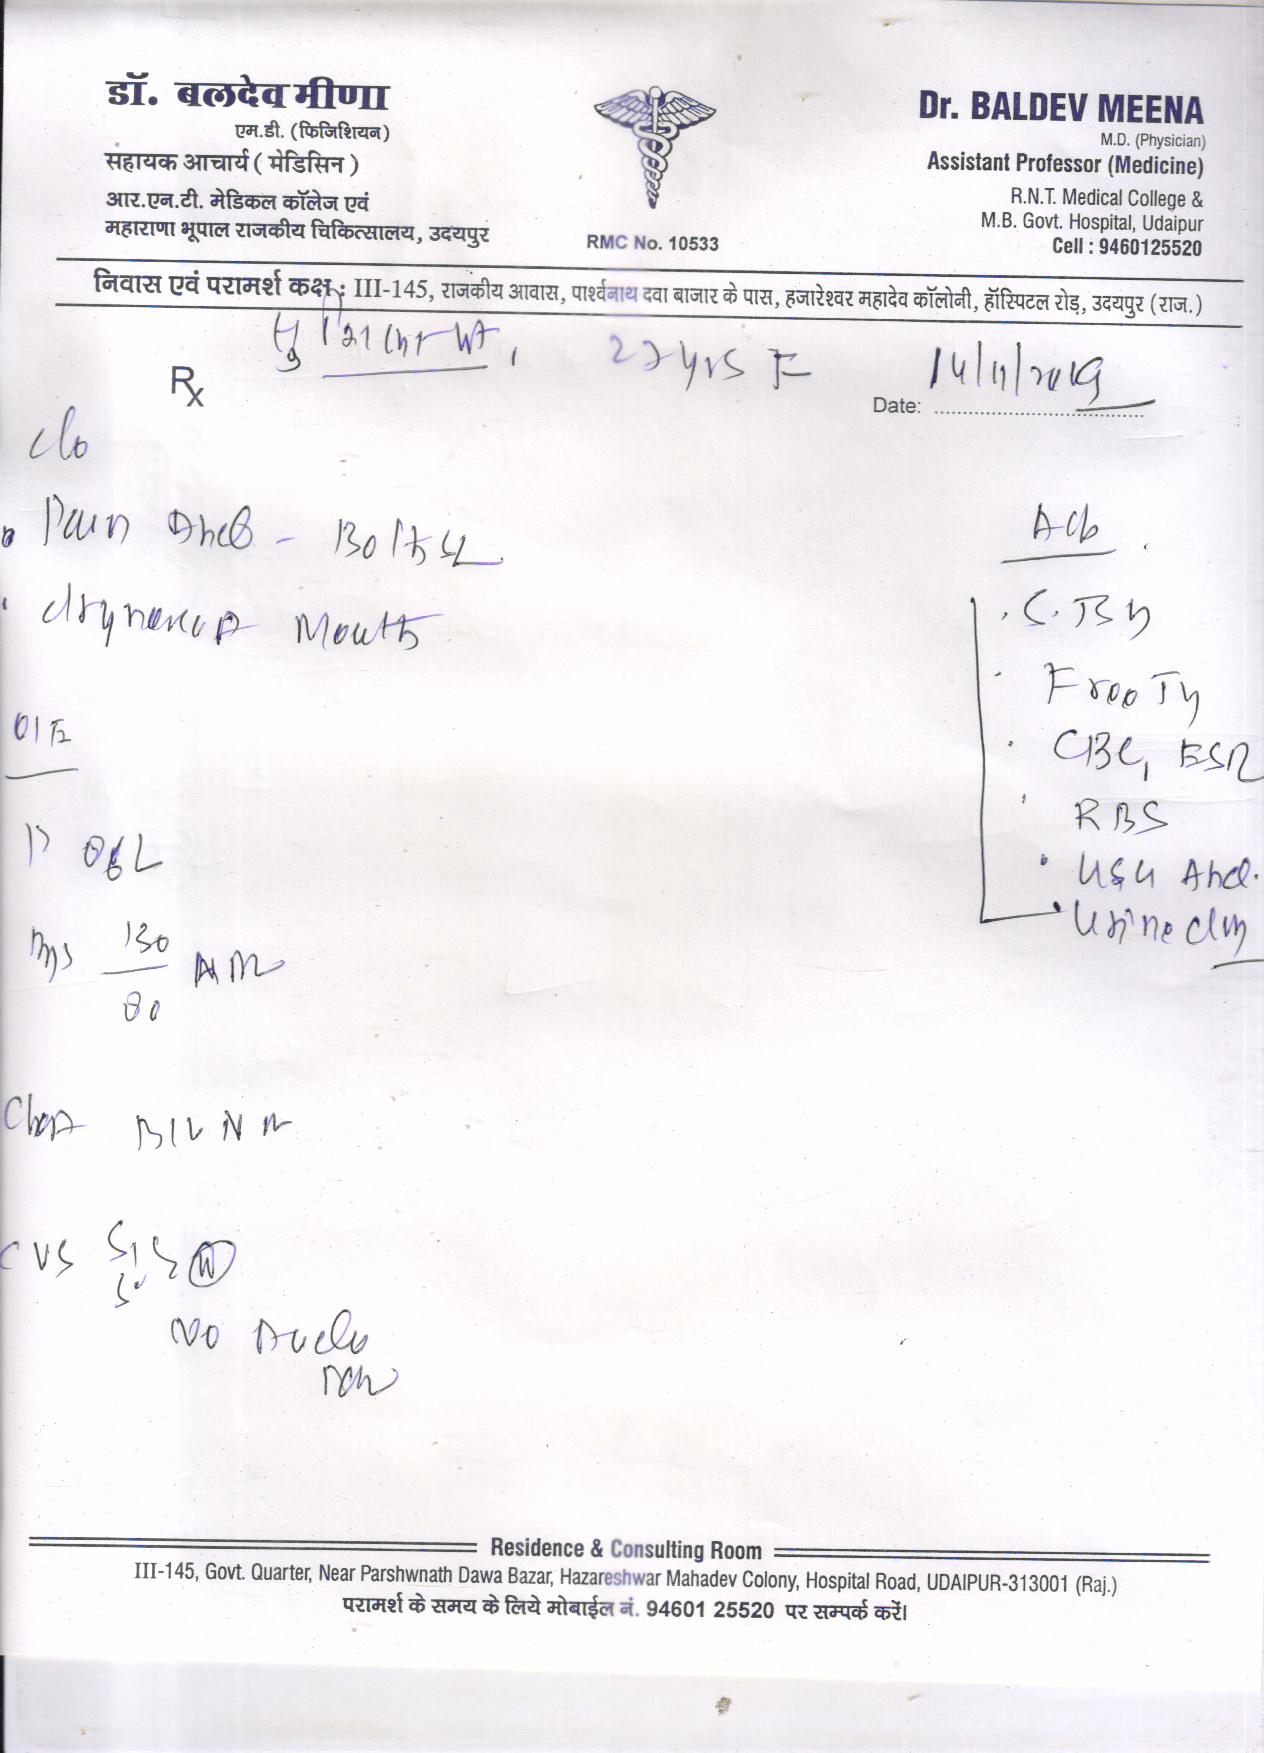 डॉ. बलदेव मीणा
एम.डी. (फिजिशियन)
सहायक आचार्य ( मेडिसिन )
आर.एन.टी. मेडिकल कॉलेज एवं
महाराणा भूपाल राजकीय चिकित्सालय, उदयपुर
RMC No. 10533
Dr. BALDEV MEENA
M.D. (Physician)
Assistant Professor (Medicine)
R.N.T. Medical College &
M.B. Govt. Hospital, Udaipur
Cell : 9460125520
निवास एवं परामर्श कक्ष : III-145, राजकीय आवास, पार्श्वनाथ दवा बाजार के पास, हजारेश्वर महादेव कॉलोनी, हॉस्पिटल रोड़, उदयपुर (राज.)
yrs F
14/11/2019
Rx
Date:
c/o
Pain Abd -
Mouth
O/E
130
80
Chest B/L
CVS S1 S2 N
No
Adv
Free
CBC, ESR
RBS
USG Abd.
Urine
Residence & Consulting Room
III-145, Govt. Quarter, Near Parshwnath Dawa Bazar, Hazareshwar Mahadev Colony, Hospital Road, UDAIPUR-313001 (Raj.)
परामर्श के समय के लिये मोबाईल नं. 94601 25520 पर सम्पर्क करें।